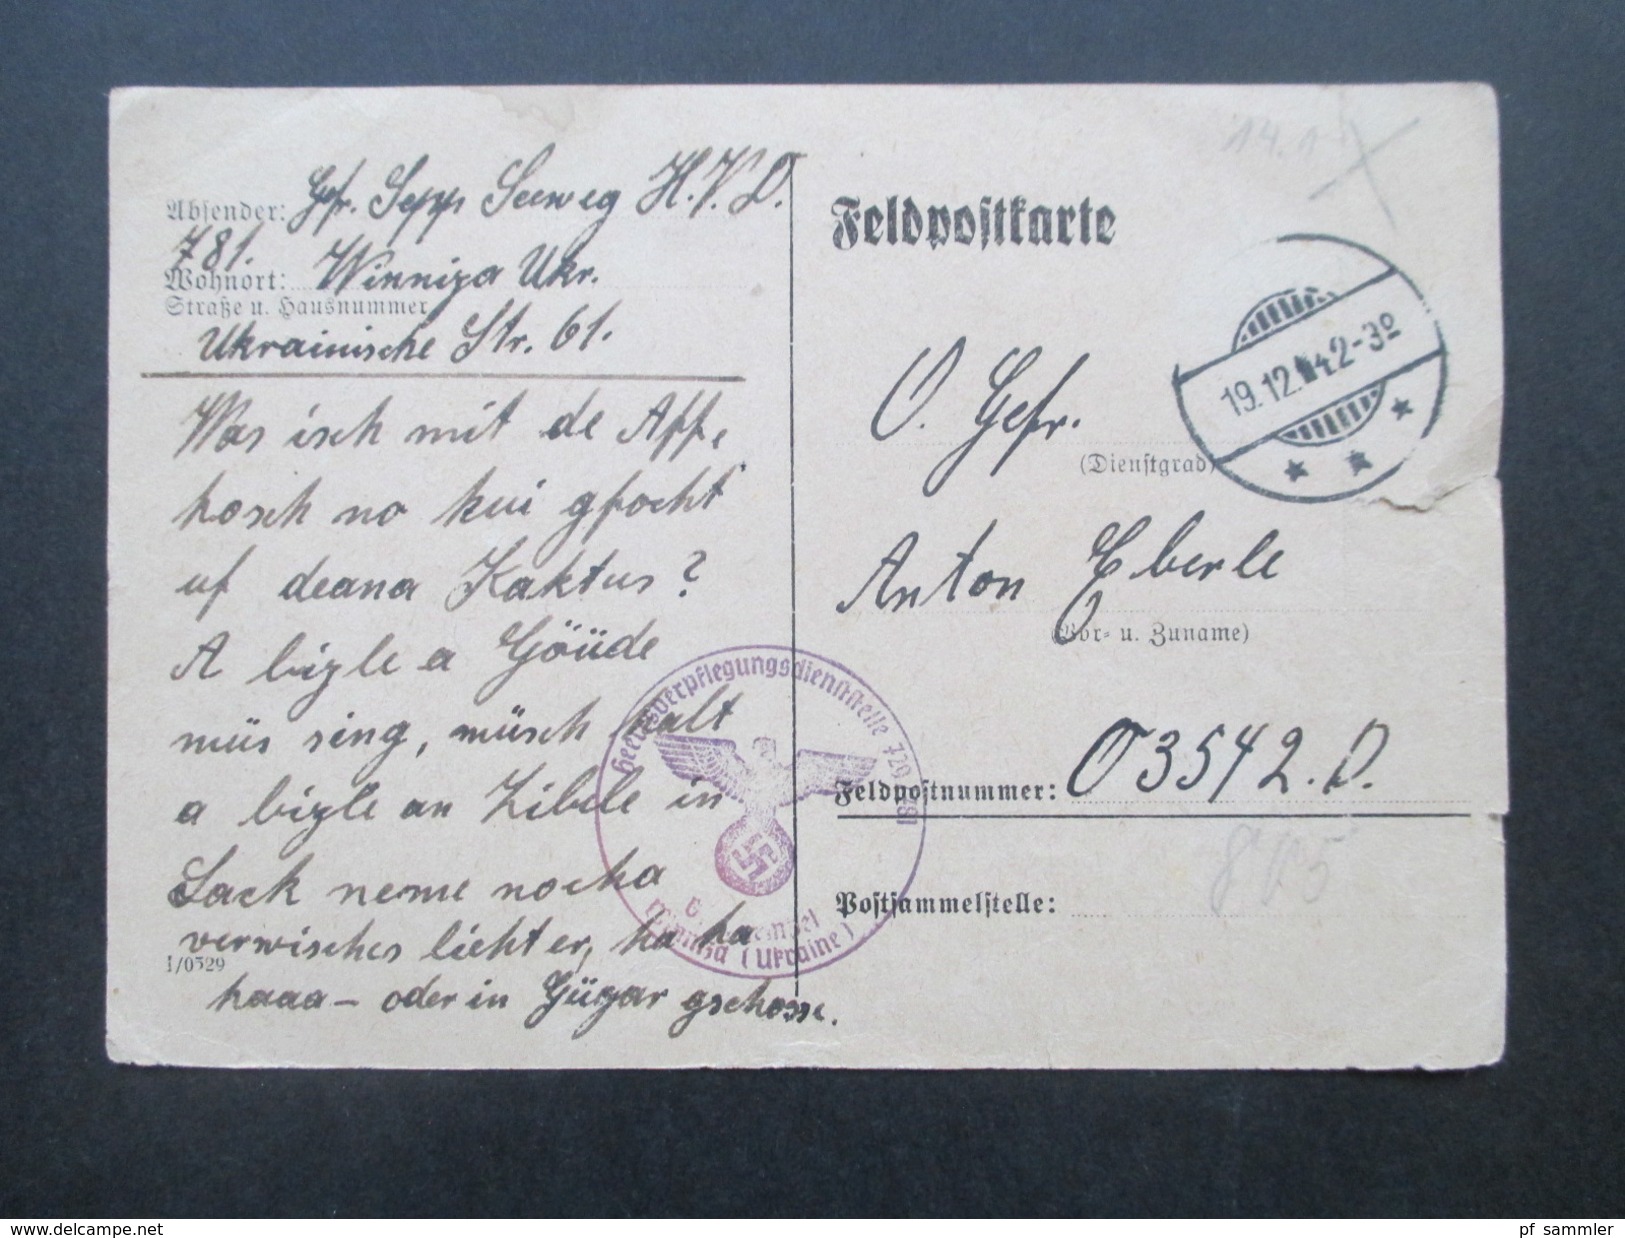 Absender: Gfr. Sepp Seeweg H.V.D.
781.
Wohnort: Winniza Ukr.
Straße u. Hausnummer
Ukrainische Str. 61.
Was isch mit de Aff,
hosch no kui gfocht
uf deana Kaktus?
A bizle a Göüde
müs sing, müsch halt
a bizle an Zibele in
Sack neme nocha
verwisches liehter, ha ha
1/0529
haaa – oder in Gügar gschosse.
Feldpostkarte
19.12.42-3º
O. Gefr.
(Dienstgrad)
Anton Eberle
(Vor- u. Zuname)
Feldpostnummer: 03542.D.
Postsammelstelle:
Heeresverpflegungsdienststelle 720/781
Winniza (Ukraine)
pf sammler
delcampe.net